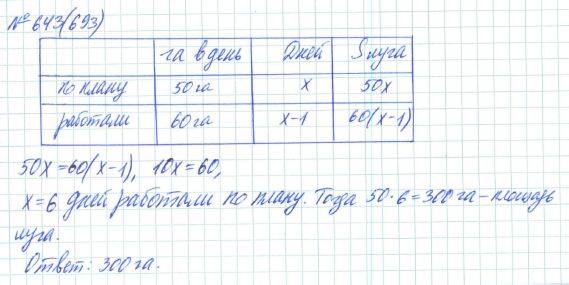 № 643(693)
га в день Дней S луга
по плану 50 га x 50x
работали 60 га x-1 60(x-1)
50x=60(x-1), 10x=60,
x=6 дней работали по плану. Тогда 50·6=300 га - площадь
луга.
Ответ: 300 га.